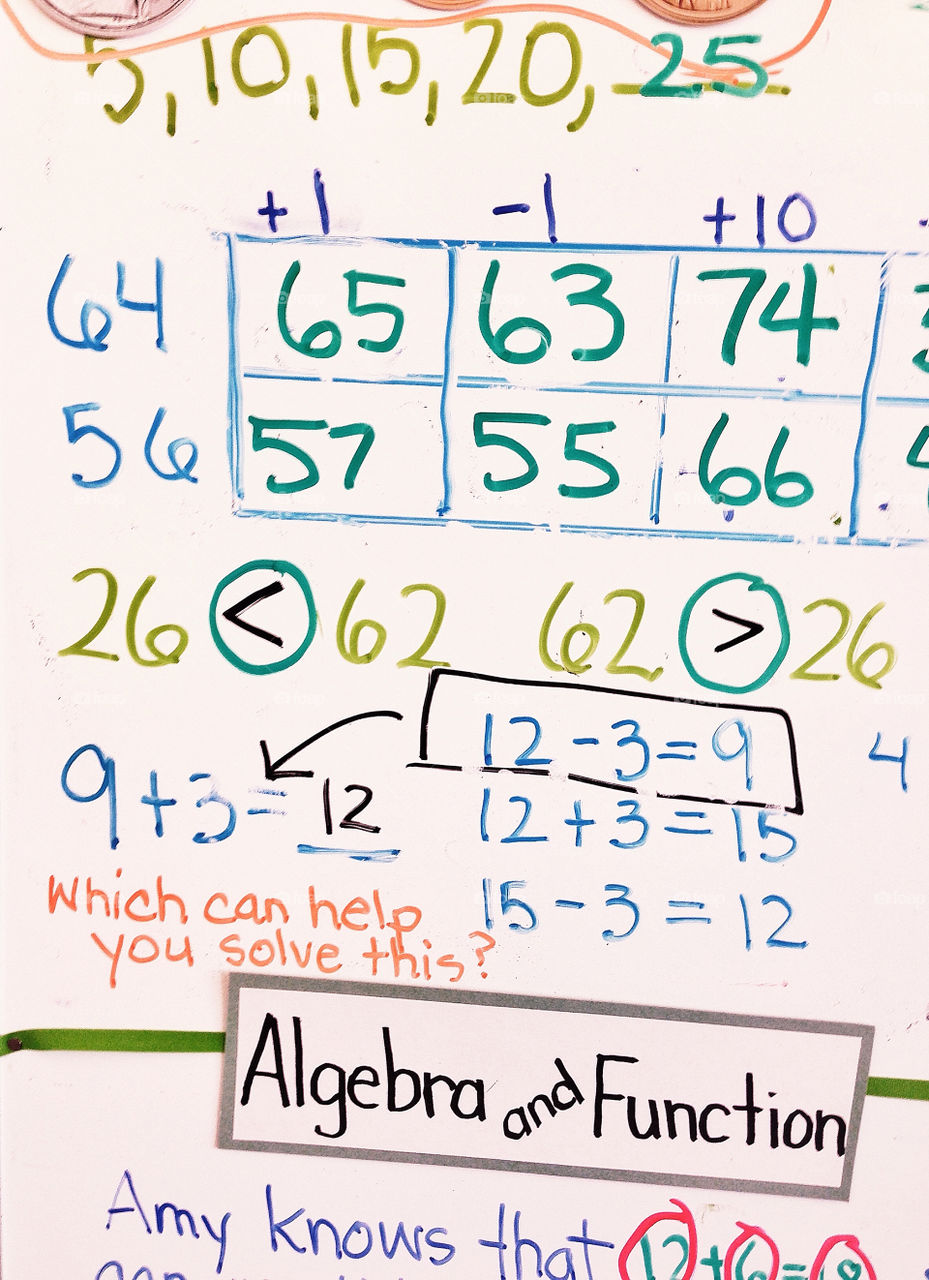 5, 10, 15, 20, 25
+1 -1 +10
64 65 63 74
56 57 55 66
26 < 62 62 > 26
12 - 3 = 9
9 + 3 = 12
12 + 3 = 15
4
Which can help
you solve this?
15 - 3 = 12
Algebra and Function
Amy knows that 12 + 6 =